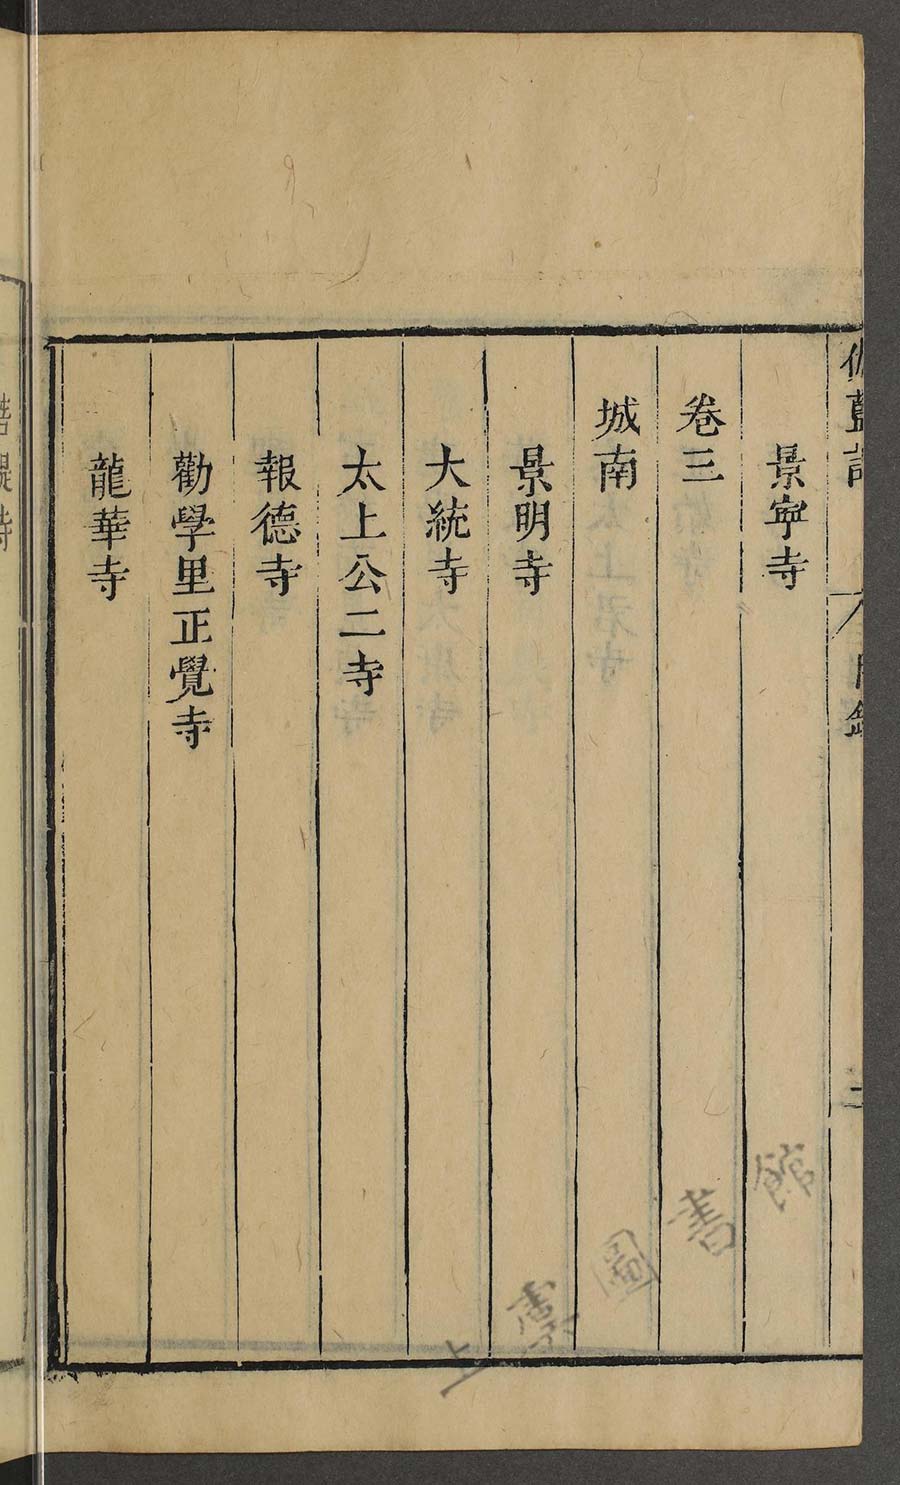 伽藍記 目錄 二
景寧寺
卷三
城南
景明寺
大統寺
太上公二寺
報德寺
勸學里正覺寺
龍華寺
上虞圖書館